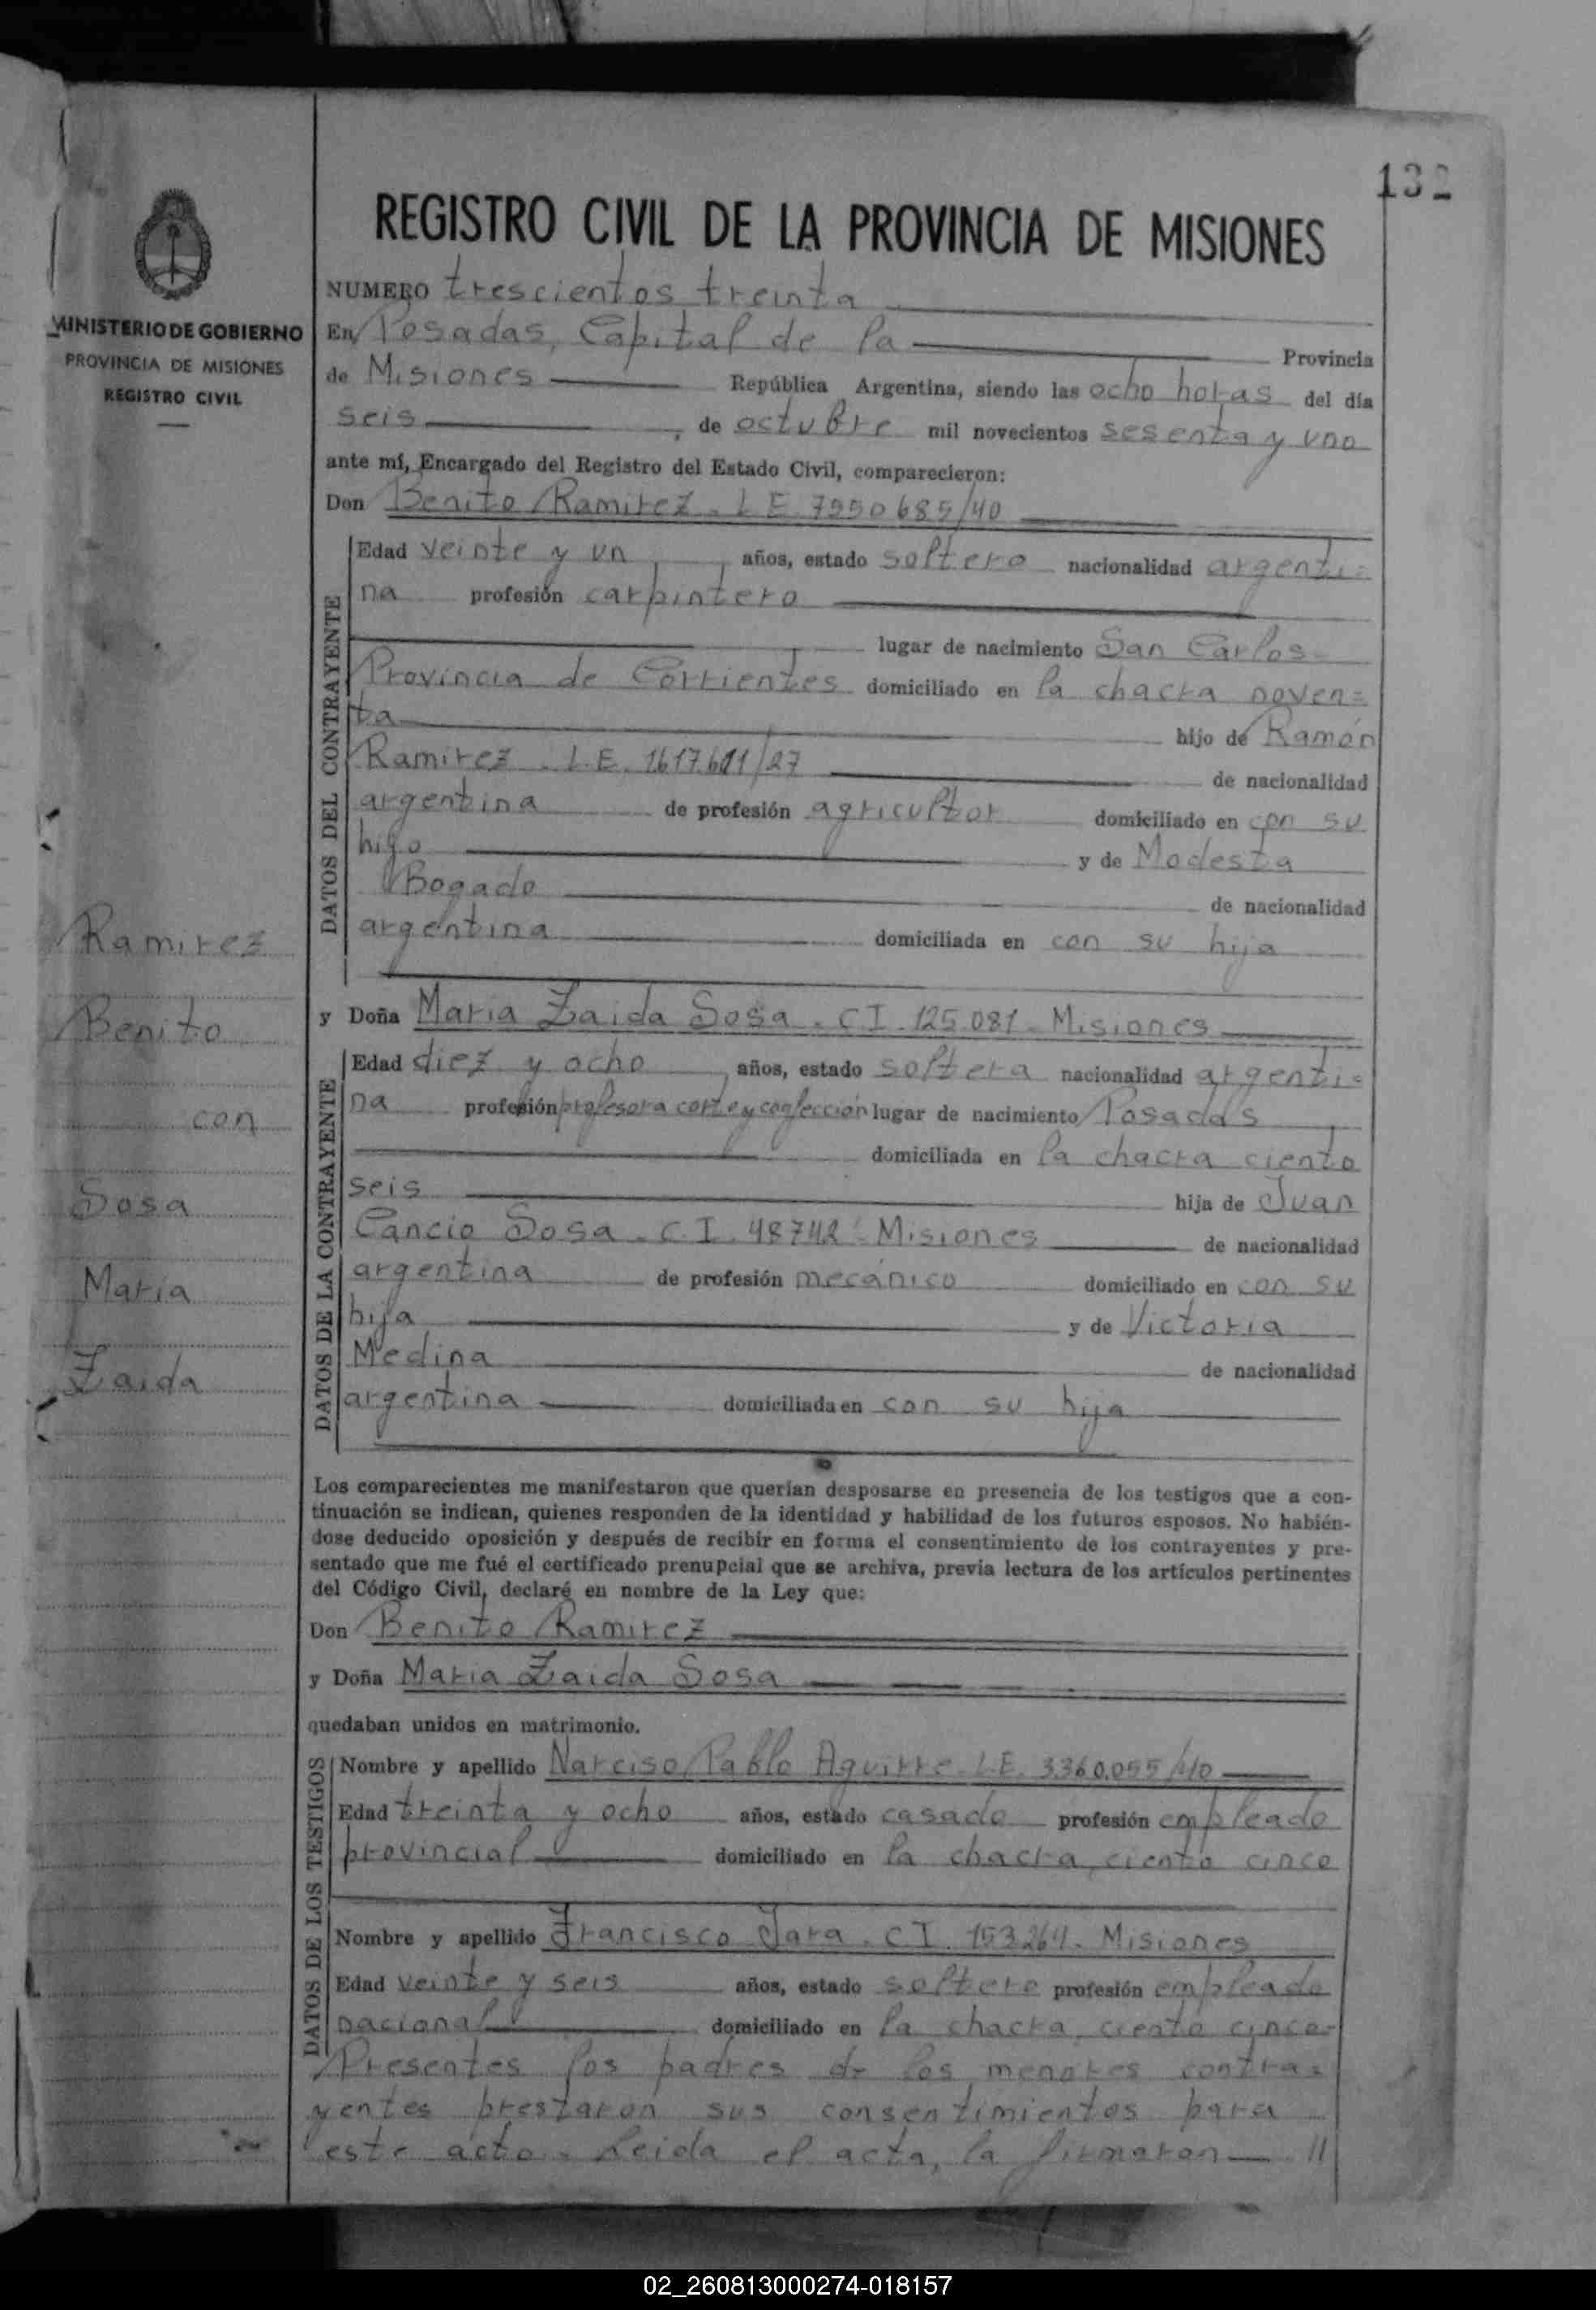 132
REGISTRO CIVIL DE LA PROVINCIA DE MISIONES
MINISTERIO DE GOBIERNO
PROVINCIA DE MISIONES
REGISTRO CIVIL
NUMERO trescientos treinta
En Posadas, Capital de la Provincia
de Misiones República Argentina, siendo las ocho horas del día
seis, de octubre mil novecientos sesenta y uno
ante mí, Encargado del Registro del Estado Civil, comparecieron:
Don Benito Ramirez. LE 7550685/40
DATOS DEL CONTRAYENTE
Edad veinte y un años, estado soltero nacionalidad argenti=
na profesión carpintero
lugar de nacimiento San Carlos
Provincia de Corrientes domiciliado en la chacra noven=
ta hijo de Ramón
Ramirez. L.E. 1617.611/27 de nacionalidad
argentina de profesión agricultor domiciliado en con su
hijo y de Modesta
Bogado de nacionalidad
argentina domiciliada en con su hija
y Doña Maria Zaida Sosa. CI. 125.081. Misiones
DATOS DE LA CONTRAYENTE
Edad diez y ocho años, estado soltera nacionalidad argenti=
na profesión profesora corte y confección lugar de nacimiento Posadas
domiciliada en la chacra ciento
seis hija de Juan
Cancio Sosa. C.I. 48742 Misiones de nacionalidad
argentina de profesión mecánico domiciliado en con su
hija y de Victoria
Medina de nacionalidad
argentina domiciliada en con su hija
Ramirez
Benito
con
Sosa
Maria
Zaida
Los comparecientes me manifestaron que querían desposarse en presencia de los testigos que a con-
tinuación se indican, quienes responden de la identidad y habilidad de los futuros esposos. No habién-
dose deducido oposición y después de recibir en forma el consentimiento de los contrayentes y pre-
sentado que me fué el certificado prenupcial que se archiva, previa lectura de los artículos pertinentes
del Código Civil, declaré en nombre de la Ley que:
Don Benito Ramirez
y Doña Maria Zaida Sosa
quedaban unidos en matrimonio.
DATOS DE LOS TESTIGOS
Nombre y apellido Narciso Pablo Aguirre. L.E. 3.360.055/40
Edad treinta y ocho años, estado casado profesión empleado
provincial domiciliado en la chacra ciento cinco
Nombre y apellido Francisco Jara. C.I. 153.264. Misiones
Edad veinte y seis años, estado soltero profesión empleado
nacional domiciliado en la chacra ciento cinco-
Presentes los padres de los menores contra=
yentes prestaron sus consentimientos para
este acto. Leida el acta, la firmaron — //
02_260813000274-018157